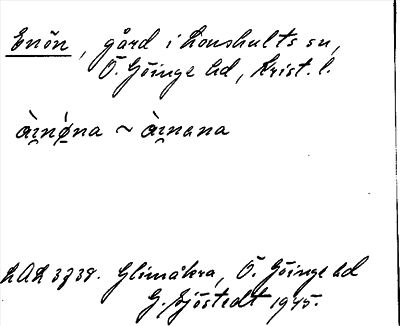 Enön, gård i Loushults sn,
Ö. Göinge hd, Krist. l.
àı̯nǿ̱na ~ àı̯nana
LAL 3738. Glimåkra, Ö. Göinge hd
G. Sjöstedt 1945.